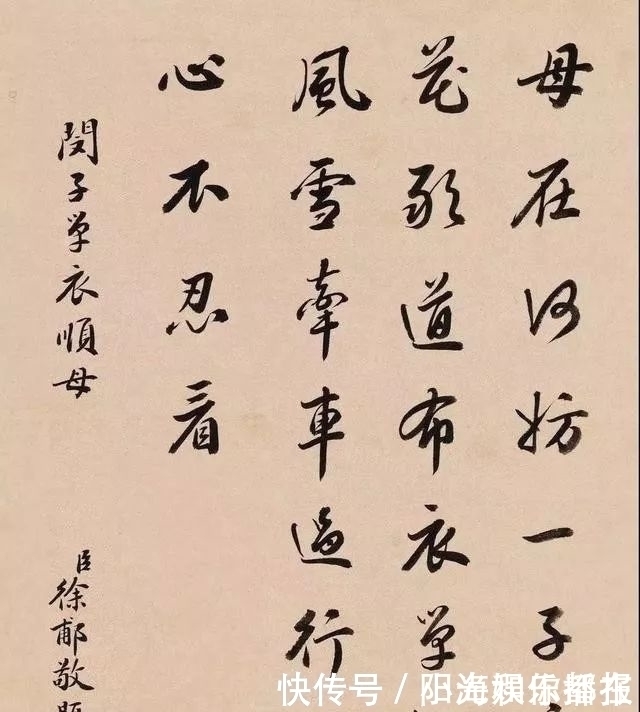 母在何妨一子
花敢道布衣單
風雪牽車過行
心不忍看
閔子單衣順母
臣徐郙敬題
快传号 / 阳